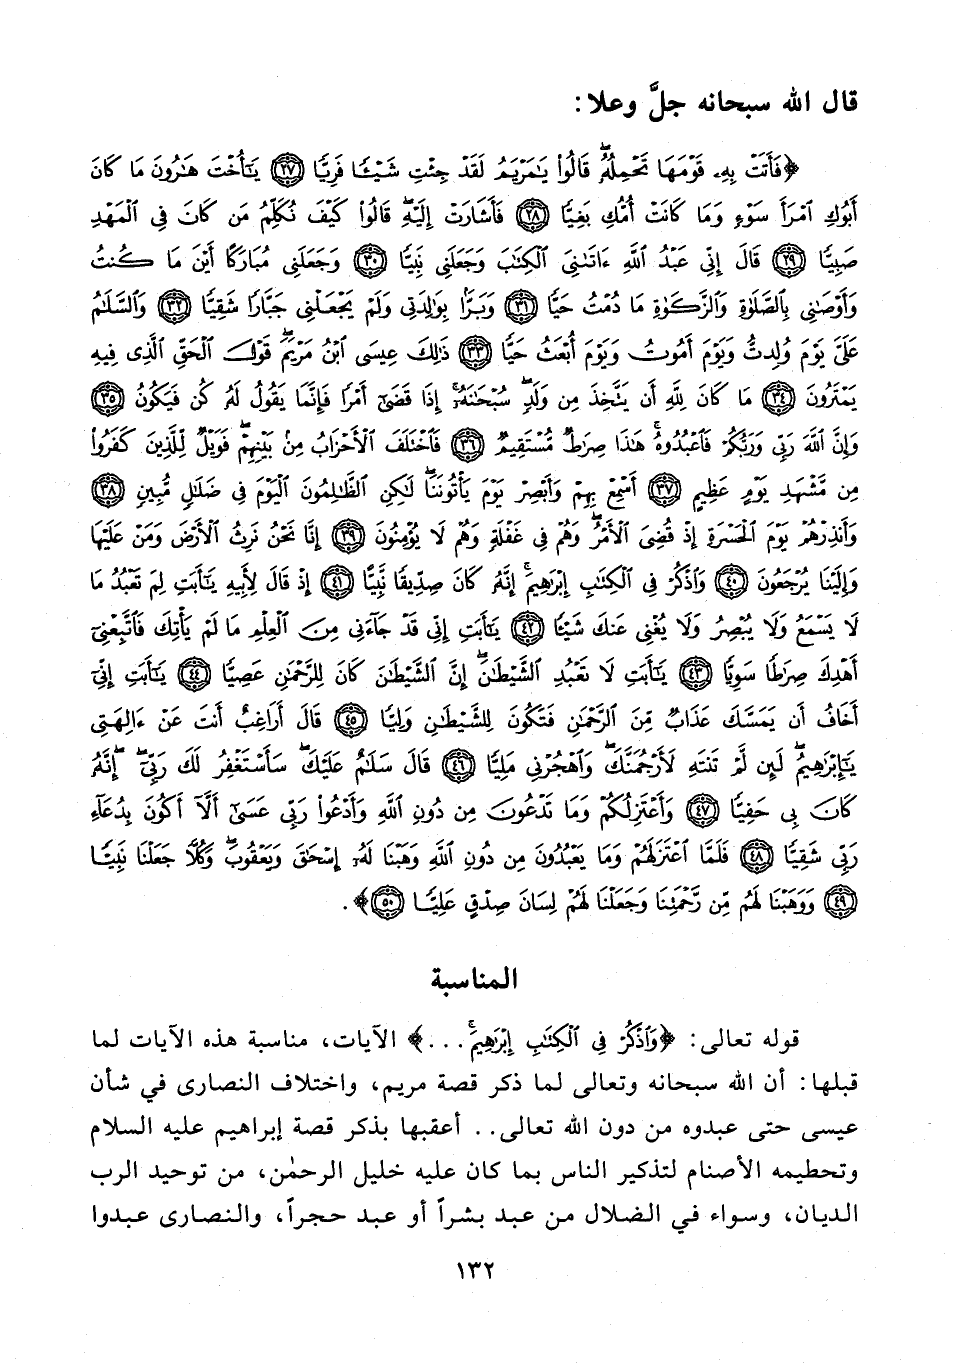 قال الله سبحانه جلَّ وعلا:
﴿فَأَتَتْ بِهِۦ قَوْمَهَا تَحْمِلُهُۥۖ قَالُواْ يَٰمَرْيَمُ لَقَدْ جِئْتِ شَيْـًٔا فَرِيًّا ﴿٢٧﴾ يَٰٓأُخْتَ هَٰرُونَ مَا كَانَ
أَبُوكِ ٱمْرَأَ سَوْءٍ وَمَا كَانَتْ أُمُّكِ بَغِيًّا ﴿٢٨﴾ فَأَشَارَتْ إِلَيْهِۖ قَالُواْ كَيْفَ نُكَلِّمُ مَن كَانَ فِى ٱلْمَهْدِ
صَبِيًّا ﴿٢٩﴾ قَالَ إِنِّى عَبْدُ ٱللَّهِ ءَاتَىٰنِىَ ٱلْكِتَٰبَ وَجَعَلَنِى نَبِيًّا ﴿٣٠﴾ وَجَعَلَنِى مُبَارَكًا أَيْنَ مَا كُنتُ
وَأَوْصَٰنِى بِٱلصَّلَوٰةِ وَٱلزَّكَوٰةِ مَا دُمْتُ حَيًّا ﴿٣١﴾ وَبَرًّۢا بِوَٰلِدَتِى وَلَمْ يَجْعَلْنِى جَبَّارًا شَقِيًّا ﴿٣٢﴾ وَٱلسَّلَٰمُ
عَلَىَّ يَوْمَ وُلِدتُّ وَيَوْمَ أَمُوتُ وَيَوْمَ أُبْعَثُ حَيًّا ﴿٣٣﴾ ذَٰلِكَ عِيسَى ٱبْنُ مَرْيَمَۖ قَوْلَ ٱلْحَقِّ ٱلَّذِى فِيهِ
يَمْتَرُونَ ﴿٣٤﴾ مَا كَانَ لِلَّهِ أَن يَتَّخِذَ مِن وَلَدٍۖ سُبْحَٰنَهُۥٓۚ إِذَا قَضَىٰٓ أَمْرًا فَإِنَّمَا يَقُولُ لَهُۥ كُن فَيَكُونُ ﴿٣٥﴾
وَإِنَّ ٱللَّهَ رَبِّى وَرَبُّكُمْ فَٱعْبُدُوهُۚ هَٰذَا صِرَٰطٌ مُّسْتَقِيمٌ ﴿٣٦﴾ فَٱخْتَلَفَ ٱلْأَحْزَابُ مِنۢ بَيْنِهِمْۖ فَوَيْلٌ لِّلَّذِينَ كَفَرُواْ
مِن مَّشْهَدِ يَوْمٍ عَظِيمٍ ﴿٣٧﴾ أَسْمِعْ بِهِمْ وَأَبْصِرْ يَوْمَ يَأْتُونَنَاۖ لَٰكِنِ ٱلظَّٰلِمُونَ ٱلْيَوْمَ فِى ضَلَٰلٍ مُّبِينٍ ﴿٣٨﴾
وَأَنذِرْهُمْ يَوْمَ ٱلْحَسْرَةِ إِذْ قُضِىَ ٱلْأَمْرُۖ وَهُمْ فِى غَفْلَةٍ وَهُمْ لَا يُؤْمِنُونَ ﴿٣٩﴾ إِنَّا نَحْنُ نَرِثُ ٱلْأَرْضَ وَمَنْ عَلَيْهَا
وَإِلَيْنَا يُرْجَعُونَ ﴿٤٠﴾ وَٱذْكُرْ فِى ٱلْكِتَٰبِ إِبْرَٰهِيمَۚ إِنَّهُۥ كَانَ صِدِّيقًا نَّبِيًّا ﴿٤١﴾ إِذْ قَالَ لِأَبِيهِ يَٰٓأَبَتِ لِمَ تَعْبُدُ مَا
لَا يَسْمَعُ وَلَا يُبْصِرُ وَلَا يُغْنِى عَنكَ شَيْـًٔا ﴿٤٢﴾ يَٰٓأَبَتِ إِنِّى قَدْ جَآءَنِى مِنَ ٱلْعِلْمِ مَا لَمْ يَأْتِكَ فَٱتَّبِعْنِىٓ
أَهْدِكَ صِرَٰطًا سَوِيًّا ﴿٤٣﴾ يَٰٓأَبَتِ لَا تَعْبُدِ ٱلشَّيْطَٰنَۖ إِنَّ ٱلشَّيْطَٰنَ كَانَ لِلرَّحْمَٰنِ عَصِيًّا ﴿٤٤﴾ يَٰٓأَبَتِ إِنِّىٓ
أَخَافُ أَن يَمَسَّكَ عَذَابٌ مِّنَ ٱلرَّحْمَٰنِ فَتَكُونَ لِلشَّيْطَٰنِ وَلِيًّا ﴿٤٥﴾ قَالَ أَرَاغِبٌ أَنتَ عَنْ ءَالِهَتِى
يَٰٓإِبْرَٰهِيمُۖ لَئِن لَّمْ تَنتَهِ لَأَرْجُمَنَّكَۖ وَٱهْجُرْنِى مَلِيًّا ﴿٤٦﴾ قَالَ سَلَٰمٌ عَلَيْكَۖ سَأَسْتَغْفِرُ لَكَ رَبِّىٓۖ إِنَّهُۥ
كَانَ بِى حَفِيًّا ﴿٤٧﴾ وَأَعْتَزِلُكُمْ وَمَا تَدْعُونَ مِن دُونِ ٱللَّهِ وَأَدْعُواْ رَبِّى عَسَىٰٓ أَلَّآ أَكُونَ بِدُعَآءِ
رَبِّى شَقِيًّا ﴿٤٨﴾ فَلَمَّا ٱعْتَزَلَهُمْ وَمَا يَعْبُدُونَ مِن دُونِ ٱللَّهِ وَهَبْنَا لَهُۥٓ إِسْحَٰقَ وَيَعْقُوبَۖ وَكُلًّا جَعَلْنَا نَبِيًّا
﴿٤٩﴾ وَوَهَبْنَا لَهُم مِّن رَّحْمَتِنَا وَجَعَلْنَا لَهُمْ لِسَانَ صِدْقٍ عَلِيًّا ﴿٥٠﴾﴾.
المناسبة
قوله تعالى: ﴿وَٱذْكُرْ فِى ٱلْكِتَٰبِ إِبْرَٰهِيمَۚ...﴾ الآيات، مناسبة هذه الآيات لما
قبلها: أن الله سبحانه وتعالى لما ذكر قصة مريم، واختلاف النصارى في شأن
عيسى حتى عبدوه من دون الله تعالى.. أعقبها بذكر قصة إبراهيم عليه السلام
وتحطيمه الأصنام لتذكير الناس بما كان عليه خليل الرحمٰن، من توحيد الرب
الديان، وسواء في الضلال من عبد بشراً أو عبد حجراً، والنصارى عبدوا
١٣٢